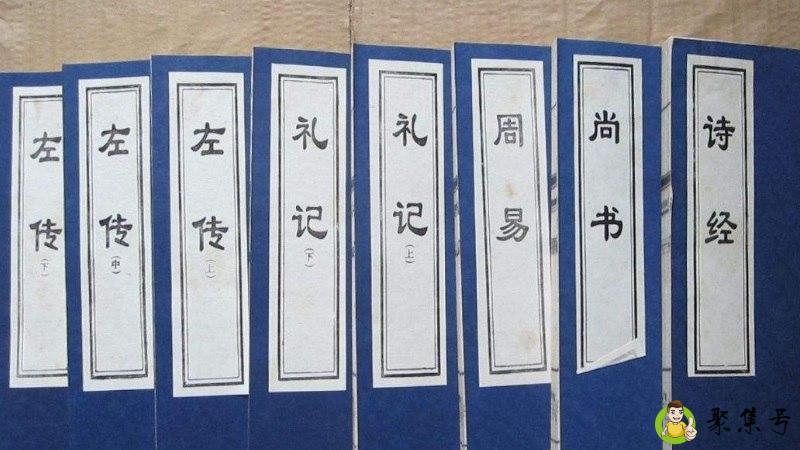 诗经
尚书
周易
礼记(上)
礼记(下)
左传(上)
左传(中)
左传(下)
聚集号